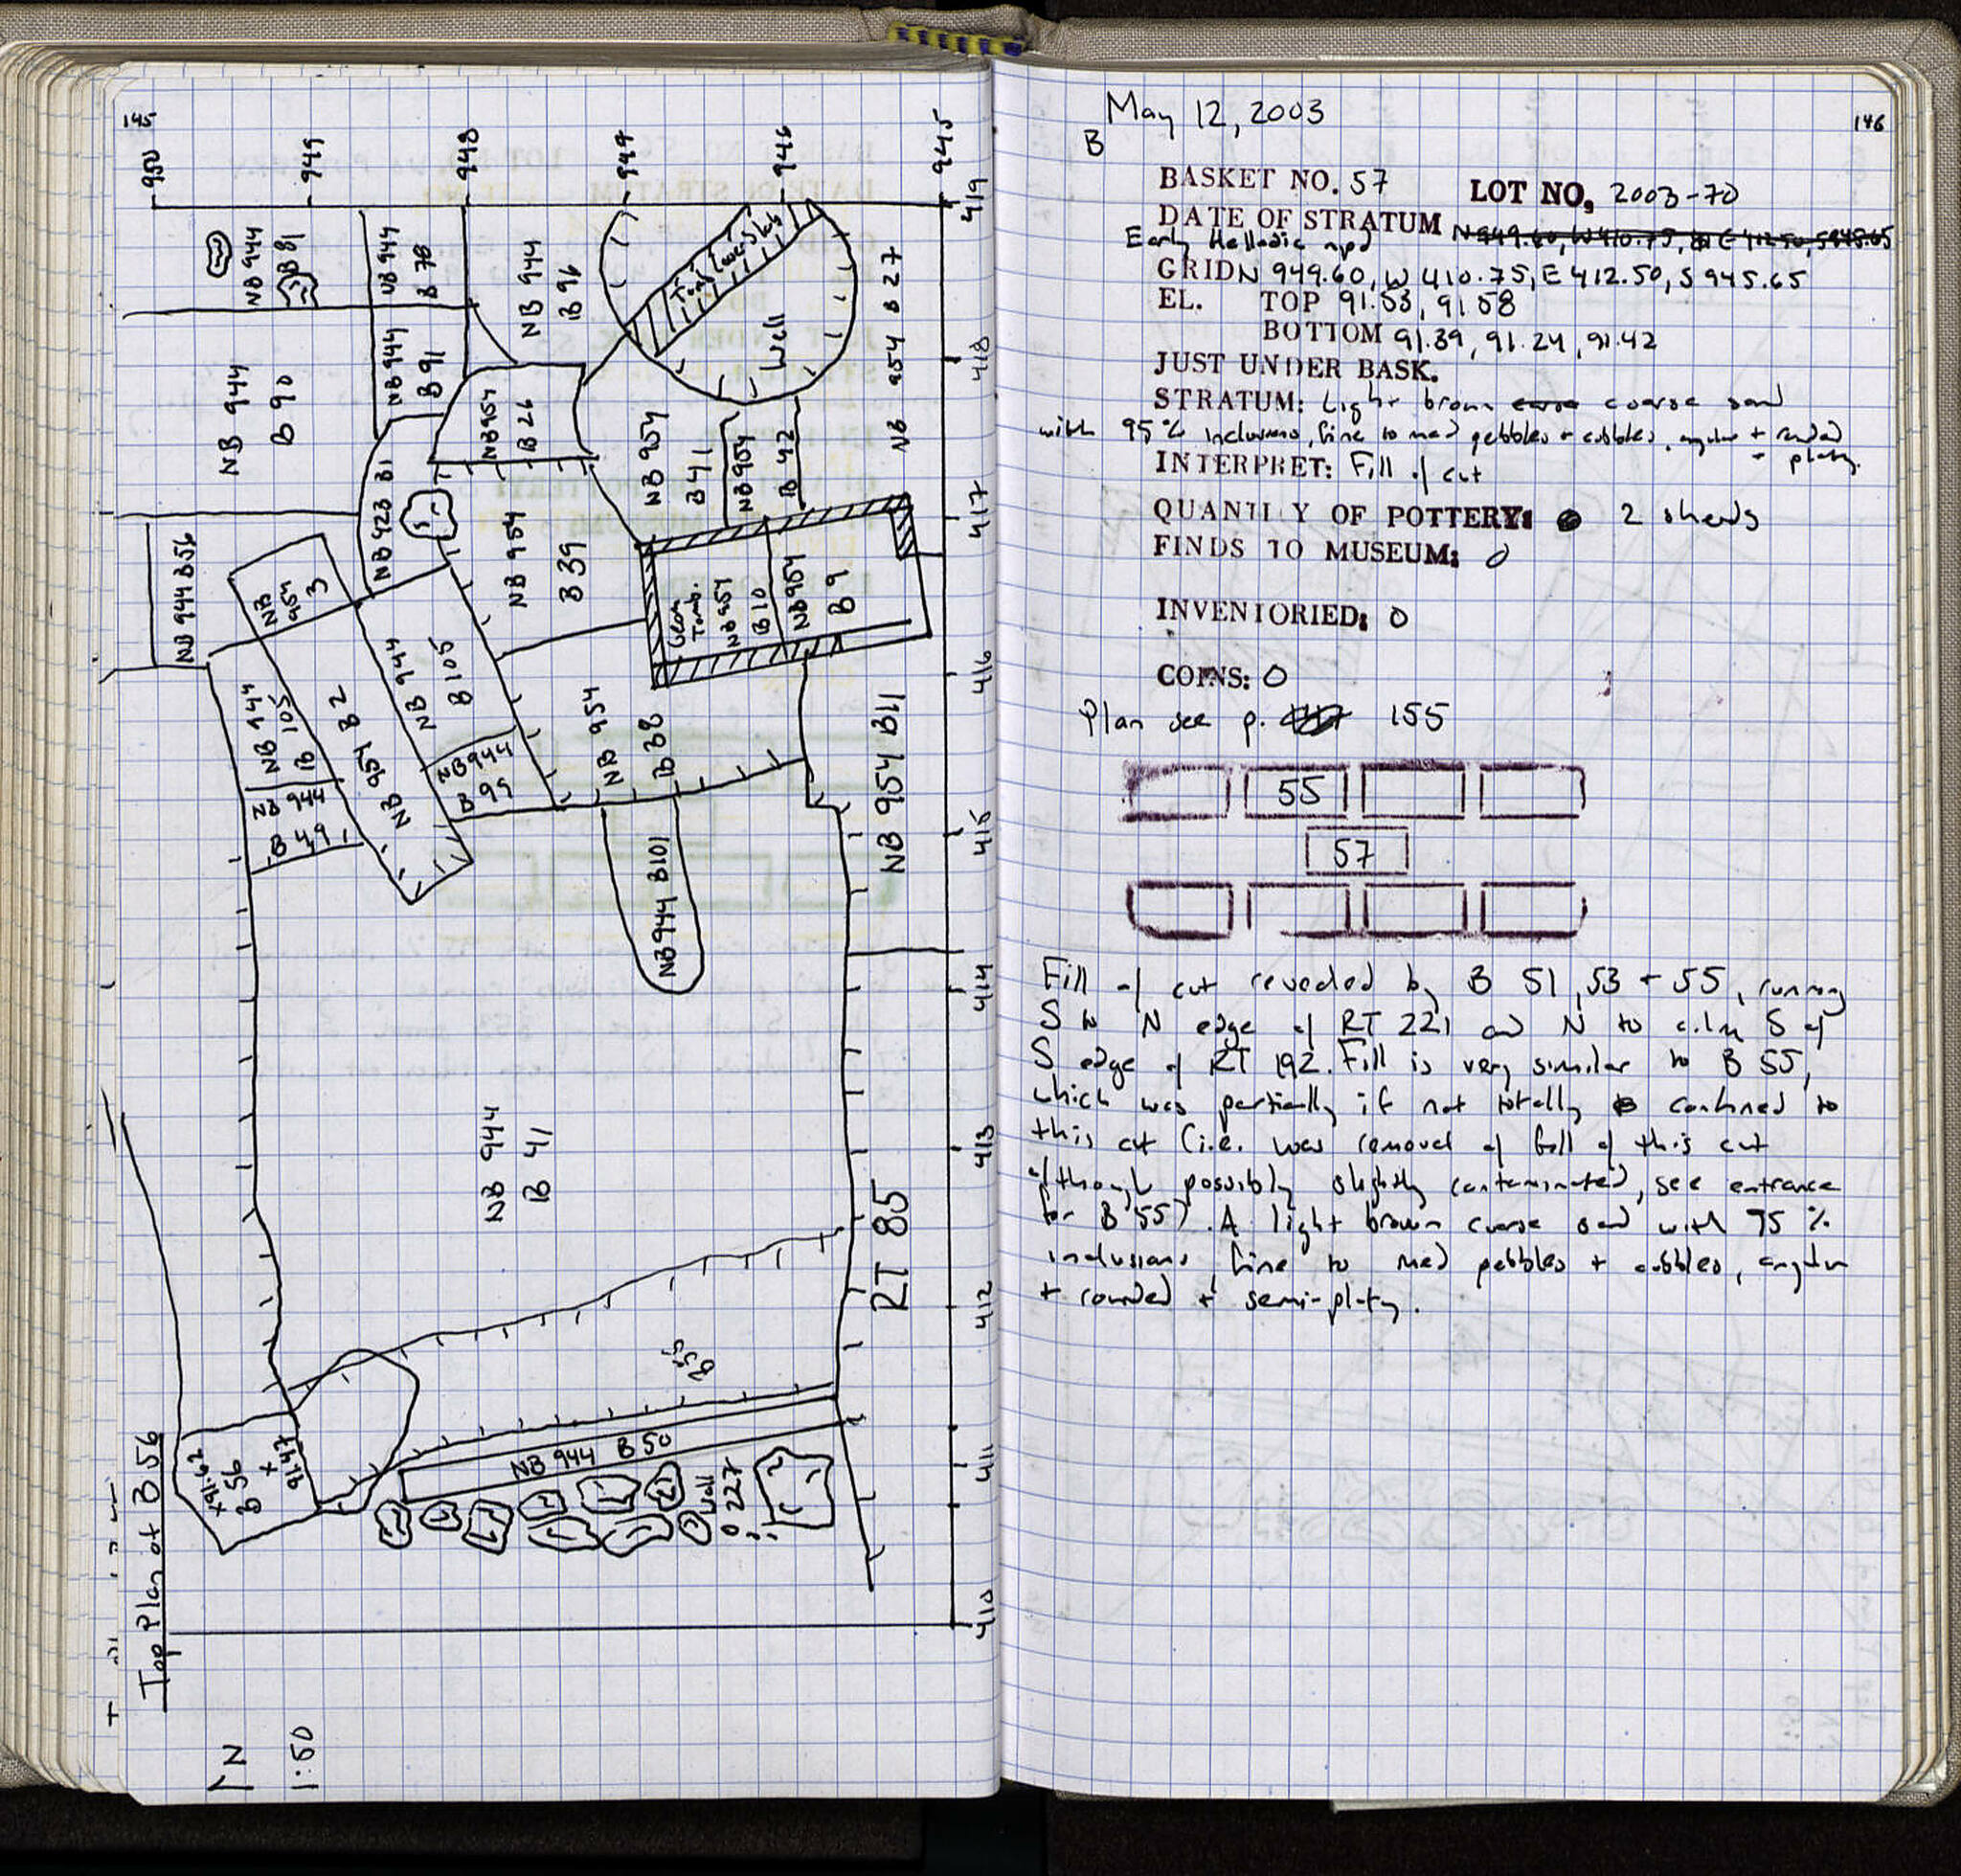 145
950
949
948
947
946
945
419
418
417
416
415
414
413
412
411
410
NB 944
B 81
NB 944
B 78
NB 944
B 96
Tomb Cover Slab
Well
NB 954 B 27
NB 944
B 90
NB 944
B 91
NB 954
B 26
NB 954
B 41
NB 954
B 42
NB 423 B1
NB 944 B 56
NB
954
3
NB 954
B 39
Geom
Tomb.
NB 954
B 10
NB 954
B 9
NB 944
B 105
NB 954 B 2
NB 944
B 105
NB 944
B 49
NB 944
B 95
NB 954
B 38
NB 954 B11
NB 944 B101
NB 944
B 41
RT 85
NB 944 B 50
Wall
227
x 91.62
B 56
x
91.47
Top Plan of B 56
N
1:50
May 12, 2003
146
B
BASKET NO. 57 LOT NO, 2003-70
DATE OF STRATUM N 949.60, W 410.75, E 412.50, S 945.65
Early Helladic npd
GRID N 949.60, W 410.75, E 412.50, S 945.65
EL. TOP 91.53, 91.58
BOTTOM 91.39, 91.24, 91.42
JUST UNDER BASK.
STRATUM: Light brown coarse sand
with 95% inclusions, fine to med pebbles + cobbles, angular + rounded
+ platy.
INTERPRET: Fill of cut
QUANTITY OF POTTERY: 2 sherds
FINDS TO MUSEUM: 0
INVENTORIED: 0
COINS: 0
Plan see p. 155
55
57
Fill of cut revealed by B 51, 53 + 55, running
S to N edge of RT 221 and N to c.1m S of
S edge of RT 192. Fill is very similar to B 55,
which was partially if not totally confined to
this cut (i.e. was removal of fill of this cut
although possibly slightly contaminated, see entrance
for B 55). A light brown coarse sand with 75 %
inclusions, fine to med pebbles + cobbles, angular
+ rounded + semi-platy.